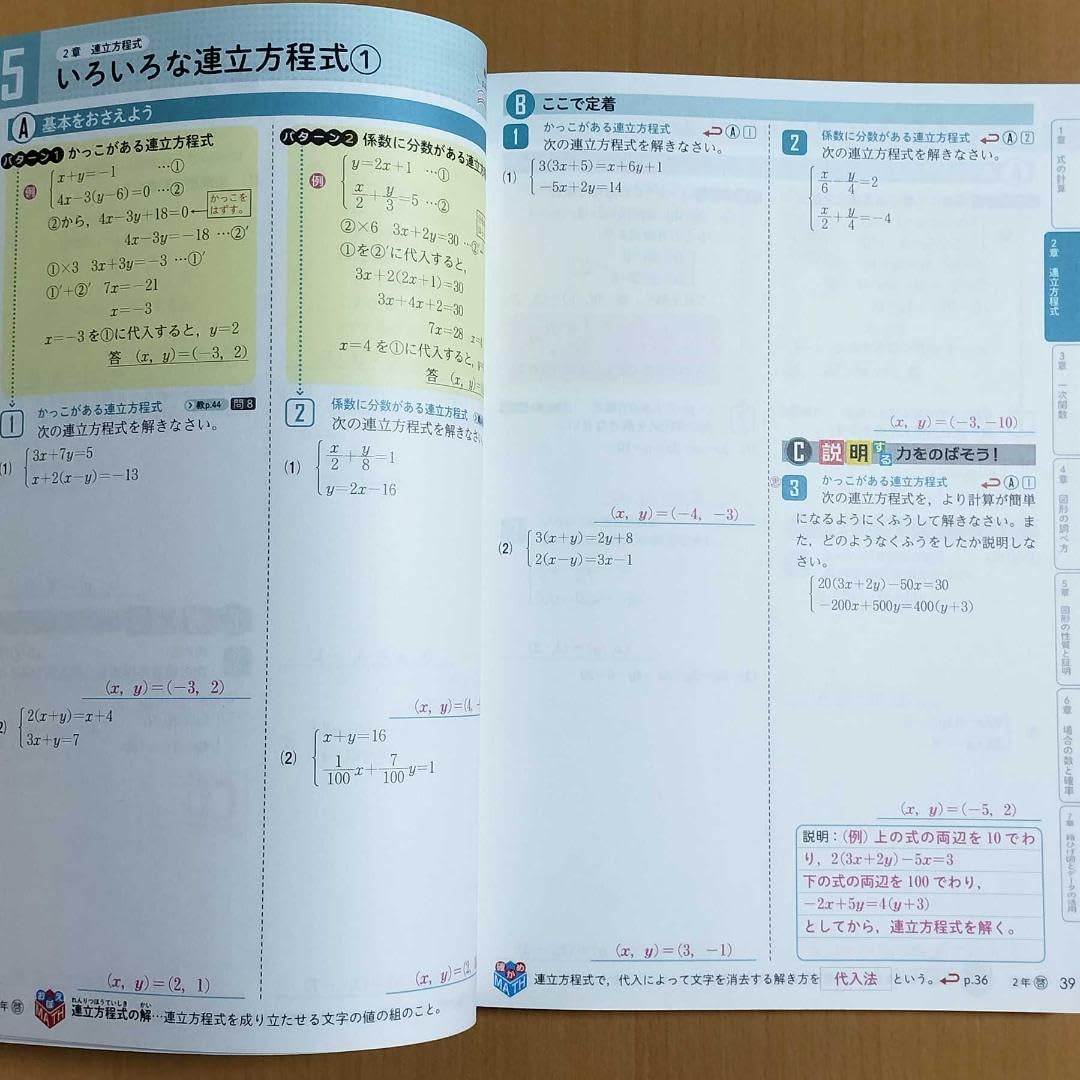 5
2章 連立方程式
いろいろな連立方程式①
A 基本をおさえよう
パターン1 かっこがある連立方程式
例 x+y=-1 …①
4x-3(y-6)=0 …②
②から，4x-3y+18=0
かっこを
はずす。
4x-3y=-18 …②′
①×3 3x+3y=-3 …①′
①′+②′ 7x=-21
x=-3
x=-3を①に代入すると，y=2
答 (x, y)=(-3, 2)
1 かっこがある連立方程式 教p.44 問8
次の連立方程式を解きなさい。
(1) 3x+7y=5
x+2(x-y)=-13
(x, y)=(-3, 2)
2(x+y)=x+4
3x+y=7
(x, y)=(2, 1)
パターン2 係数に分数がある連立
例 y=2x+1 …①
x/2+y/3=5 …②
②×6 3x+2y=30 …②
①を②′に代入すると，
3x+2(2x+1)=30
3x+4x+2=30
7x=28
x=4を①に代入すると，
答 (x, y)=
2 係数に分数がある連立方程式
次の連立方程式を解きなさい
(1) x/2+y/8=1
y=2x-16
(x, y)=(4,
(2) x+y=16
1/100x+7/100y=1
(x, y)=(2,
年 啓
おぼえ MATH
れんりつほうていしき かい
連立方程式の解…連立方程式を成り立たせる文字の値の組のこと。
B ここで定着
1 かっこがある連立方程式 A 1
次の連立方程式を解きなさい。
(1) 3(3x+5)=x+6y+1
-5x+2y=14
(x, y)=(-4, -3)
(2) 3(x+y)=2y+8
2(x-y)=3x-1
(x, y)=(3, -1)
2 係数に分数がある連立方程式 A 2
次の連立方程式を解きなさい。
x/6-y/4=2
x/2+y/4=-4
(x, y)=(-3, -10)
C 説明する 力をのばそう！
3 かっこがある連立方程式 A 1
次の連立方程式を，より計算が簡単
になるようにくふうして解きなさい。ま
た，どのようなくふうをしたか説明しな
さい。
20(3x+2y)-50x=30
-200x+500y=400(y+3)
(x, y)=(-5, 2)
説明：(例) 上の式の両辺を10でわ
り，2(3x+2y)-5x=3
下の式の両辺を100でわり，
-2x+5y=4(y+3)
としてから，連立方程式を解く。
確かめ MATH
連立方程式で，代入によって文字を消去する解き方を 代入法 という。 p.36
2年 啓 39
1章 式の計算
2章 連立方程式
3章 一次関数
4章 図形の調べ方
5章 図形の性質と証明
6章 場合の数と確率
7章 箱ひげ図とデータの活用